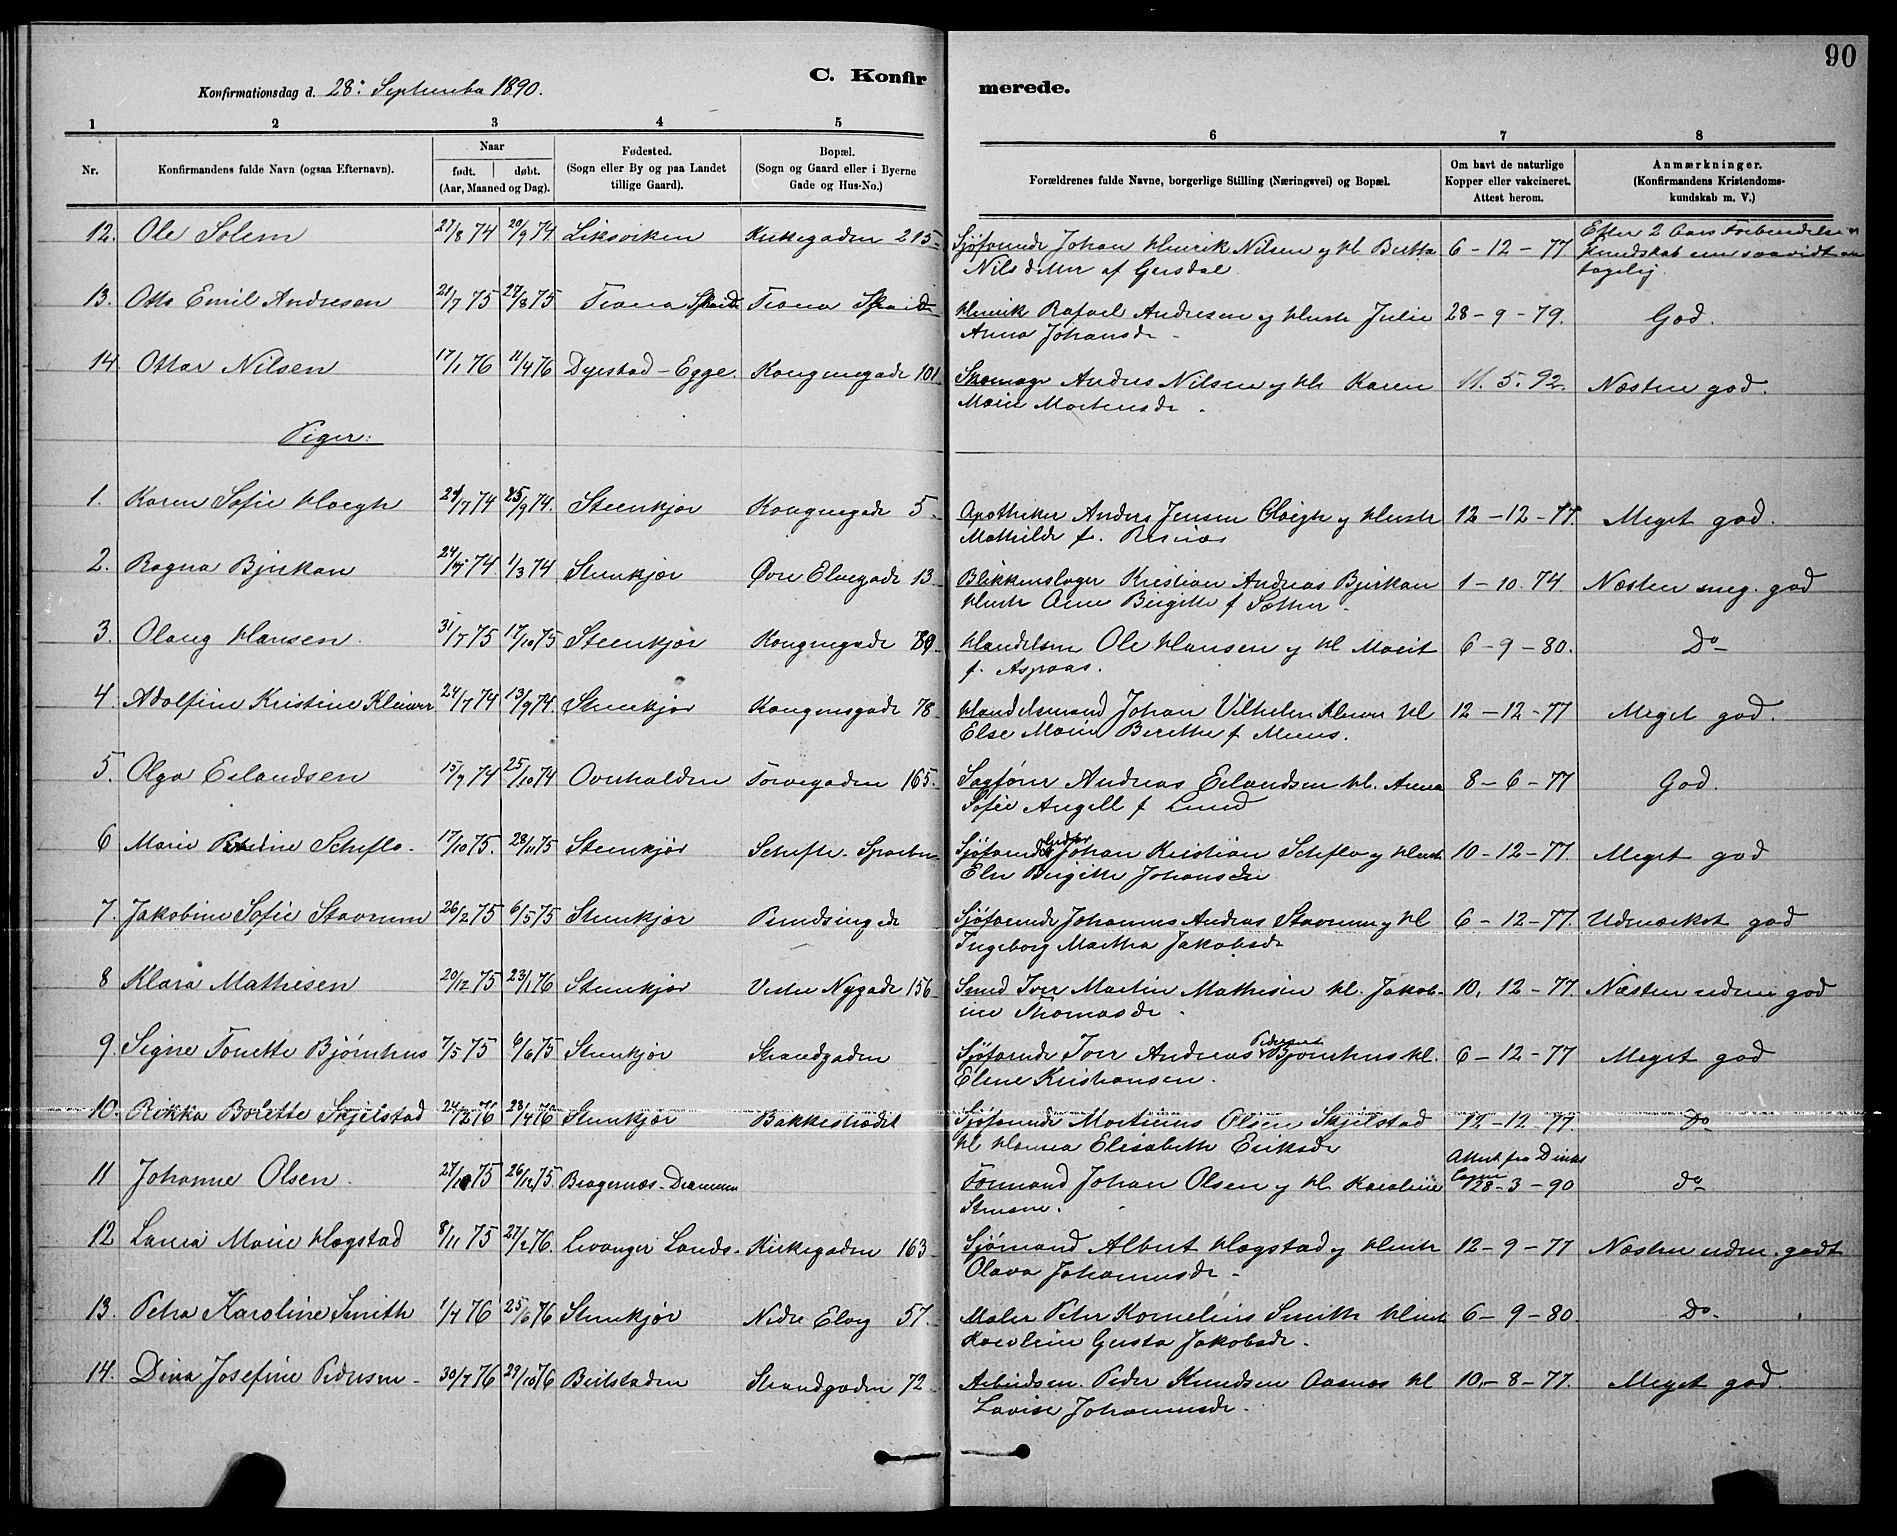 90
C. Konfirmerede.
Konfirmationsdag d. 28: September 1890.
1 2 3 4 5 6 7 8
Nr. Konfirmandens fulde Navn (ogsaa Efternavn). Naar født. døbt. (Aar, Maaned og Dag). Fødested. (Sogn eller By og paa Landet tillige Gaard). Bopæl. (Sogn og Gaard eller i Byerne Gade og Hus-No.) Forældrenes fulde Navne, borgerlige Stilling (Næringsvei) og Bopæl. Om havt de naturlige Kopper eller vakcineret. Attest herom. Anmærkninger. (Konfirmandens Kristendomskundskab m. V.)
12. Ole Solem 27/8 74 20/9 74 Liksviken Kirkegaden 215 Sjøfarende Johan Henrik Nilsen og H. Nilsdatter af 6-12-77 Efter 2 Aars Forberedelse
13. Otto Emil Andresen 21/7 75 27/8 75 Henrik Rafael Andresen og Hustr Julie 28-9-79. God.
Anna Johansdr
14. Ottar Nilsen 17/1 76 11/4 76 Dyrstad - Egge. Kongensgade 101 Skomager Anders Nilsen og H. Karen 11.5.92. Næsten god.
Marie Mortensdr.
Piger:
1. Karen Sofie Høegh 29/7 74 25/9 74. Steenkjær Kongensgade 5 Apotheker Anders Jensen Høegh og Hustr 12-12-77. Meget god.
Mathilde f.
2. Ragna Bjirkan 74. 1/3 74 Stenkjær Øvre Elvegade 13 Blikkenslager Kristian Andreas Bjirkan 1-10.74. Næsten meg. god
Hustr Birgitte f Sæther
3. Olaug Hansen. 31/7 75 17/10 75 Steenkjær Kongensgade 89 Handelsm Ole Hansen og H. Marit 6-9-80. Do
f. Aspaas.
4. Adolfine Kristine Klüwer 24/7 74 13/9 74. Steenkjær Kongensgade 78 Handelsmand Johan Vilhelm Klüwer H. 12-12-77 Meget god.
Else Marie Berethe f
5. Olga Erlandsen 15/9 74 25/10 74 Overhalden Torvegaden 165. Sagfører Andreas Erlandsen H. Anna 8-6-77 God.
Sofie Angell f Lund
6 Marie Scheflo. 17/10 75. 28/11 75 Steenkjær Scheflo. Sparbu Sjøfarende Johan Kristian Scheflo og Hustr 10-12-77. Meget god
Elen Birgitte Johansdr
7. Jakobine Sofie Stavrum 26/2 75 6/5 75 Stenkjær Sjøfarende Johannes Andreas Stavrum og H. 6-12-77. Udmærket god
Ingeborg Martha Jakobsdr
8 Klara Mathisen 20/12 75 23/1 76 Stenkjær Vestre Nygade 156 Smed Iver Martin Mathisen H. Jakob- 10. 12-77. Næsten udm. god
ine Thomasdr.
9. Signe Tonette Bjørnhus 7/5 75 6/6 75 Stenkjær Strandgaden Sjøfarende Iver Andreas Pedersen Bjørnhus H. 6-12-77 Meget god
Eline Kristiansen.
10. Rikka Bolette Skjelstad 24/2 76 23/4 76 Stenkjær Bakkestrædet Sjøfarende Martinus Olsen Skjelstad 12-12-77. Do
H. Hanna Elisabeth Eriksdr
11 Johanne Olsen. 27/10 75 26/12 75. Bragernæs. Drammen Formand Johan Olsen og H. Karoline Attest fra 28-3-90 do
12 Laura Marie Hogstad 8/11 75 27/2 76. Levanger Lands. Kirkegaden 163 Sjømand Albert Hogstad og Hustr 12-9-77 Næsten udm. godt
Olava Johannesdr.
13. Petra Karoline Smith 1/4 76 25/6 76 Stenkjær Nedre Elveg 57. Maler Peter Kornelius Smith Hustr 6-9-80. Do.
Karoline Gusta Jakobsdr.
14. Dina Josefine Pedersen 30/7 76 29/10 76 Beitstaden Strandgaden 72. Arbeidsm. Peder Knudsen Aasnes H. 10-8-77. Meget god.
Lovise Johannesdr.